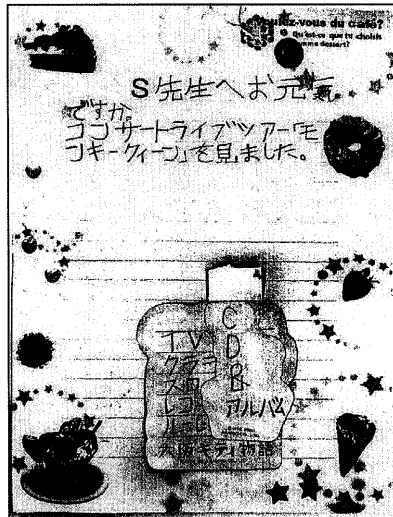 Voulez-vous du café?
Qu'est-ce que tu choisis
comme dessert?
S先生へお元気
ですか。
コンサートライブツアー「モ
ンキークィーン」を見ました。
TV
クラシ
スロ
レコ
ルーム
CD
B
アルバム
大阪キティ物語